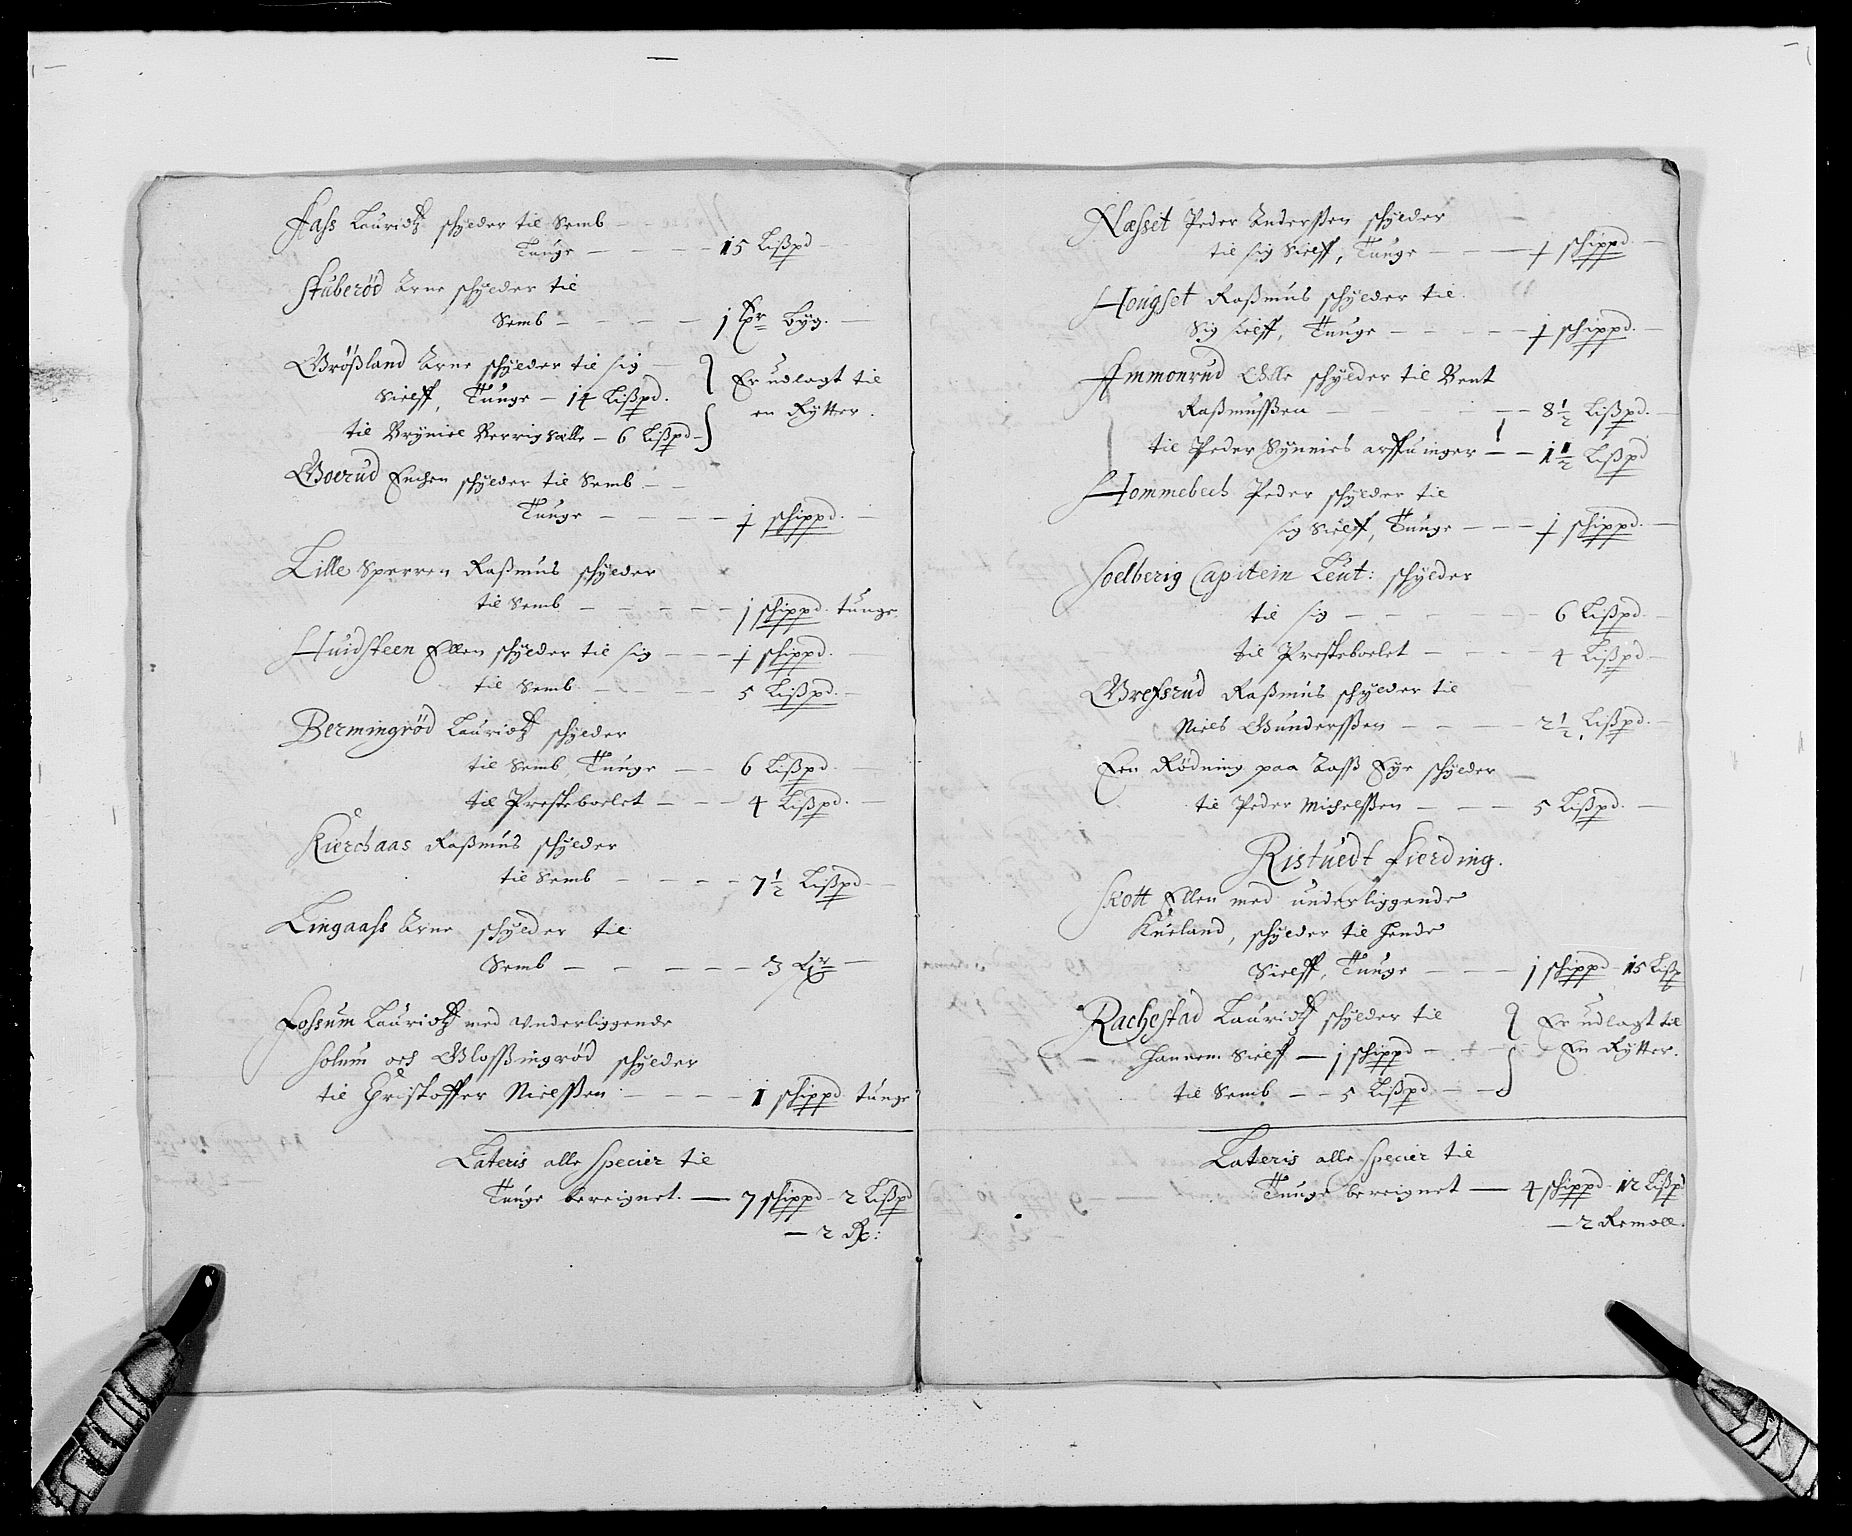 Fass Lauridtz schylder til Semb
Tunge — — — 15 Lißpd
Stuberød Arne schylder til
Semb — — — — 1 Fr byg.
Grøßland Arne schylder til sig
Sielff, Tunge — 14 Lißpd.
Er udlagt til
en Rytter.
til Bryniel — 6 Lißpd
Goerud Enchen schylder til Semb
Tunge — — — — 1 schippd.
Lille Sperren Raßmus schylder
til Semb — — — — 1 schippd. tunge
Huidsteen Ellen schylder til sig — — 1 schippd.
til Semb — — — 5 Lißpd.
Bermingrød Lauridtz schylder
til Semb, Tunge — — 6 Lißpd.
til Presteboelet — — — 4 Lißpd.
Kierchaas Raßmus schylder
til Semb — — — — 7½ Lißpd
Lingaass Arne schylder til
Semb — — — — — 3
Fossum Lauridtz med Underliggende
Solum och Glossingrød schylder
til Christoffer Nielssen — — — — 1 schippd tunge
Lateris alle Specier til
Tunge bereignet. — 7 schippd - 2 Lißpd
— 2
Næsset Peder Anderssen schylder
til sig Sielff, Tunge — — — 1 schippd
Hougset Raßmus schylder til
Sig sielff, Tunge — — — — 1 schippd.
Ammonrud Olle schylder til Bent
Raßmussen — — — — 8½ Lißpd.
til Peder Synnies arffuinger — — 1½ Lißpd
Hommebech Peder schylder til
sig Sielff, Tunge — — — 1 schippd.
Soelberig Capitein Leut: schylder
til sig — — — — — 6 Lißpd.
til Presteboelet — — — — 4 Lißpd
Grefsrud Raßmus schylder til
Niels Gunderssen — — — — 2½ Lißpd.
Een Rødning paa Aasß Eye schylder
til Peder Michelssen — — — 5 Lißpd.
Ristuedt Fierding.
Skott Ellen med underliggende
Kueland, schylder til hende
Sielff, Tunge — — — 1 schippd - 15 Lißp
Rachestad Lauridtz schylder til
hannem Sielff — 1 schippd
Er udlagt til
En Rytter.
til Semb — — 5 Lißpd
Lateris alle Specier til
Tunge bereignet — 4 schippd - 12 Lißpd
— 2 Remoll.